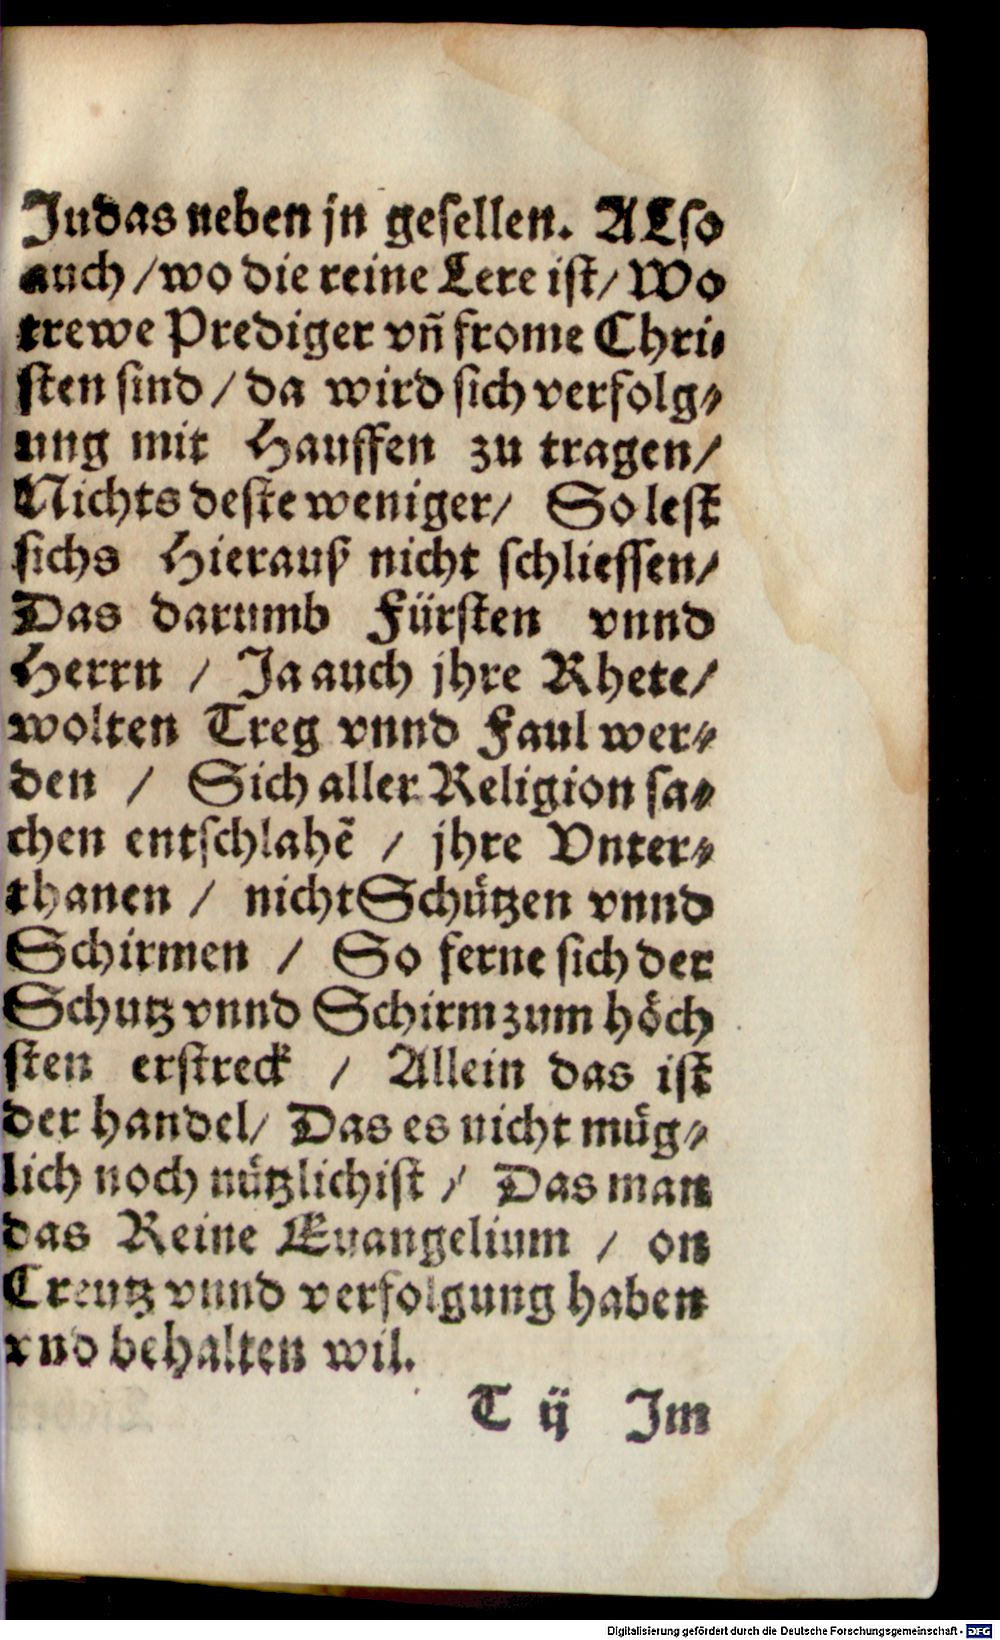 Judas neben jn gesellen. ALso
auch / wo die reine Lere ist / Wo
trewe Prediger vn̄ frome Chri⸗
sten sind / da wird sich verfolg⸗
ung mit Hauffen zu tragen /
Nichts deste weniger / So lest
sichs Hierauß nicht schliessen /
Das darumb Fürsten vnnd
Herrn / Ja auch jhre Rhete /
wolten Treg vnnd Faul wer⸗
den / Sich aller Religion sa⸗
chen entschlahẽ / jhre Vnter⸗
thanen / nicht Schützen vnnd
Schirmen / So ferne sich der
Schutz vnnd Schirm zum höch
sten erstreck / Allein das ist
der handel / Das es nicht müg⸗
lich noch nützlich ist / Das man
das Reine Euangelium / on
Creutz vnnd verfolgung haben
vnd behalten wil.
T ij Im
Digitalisierung gefördert durch die Deutsche Forschungsgemeinschaft - DFG